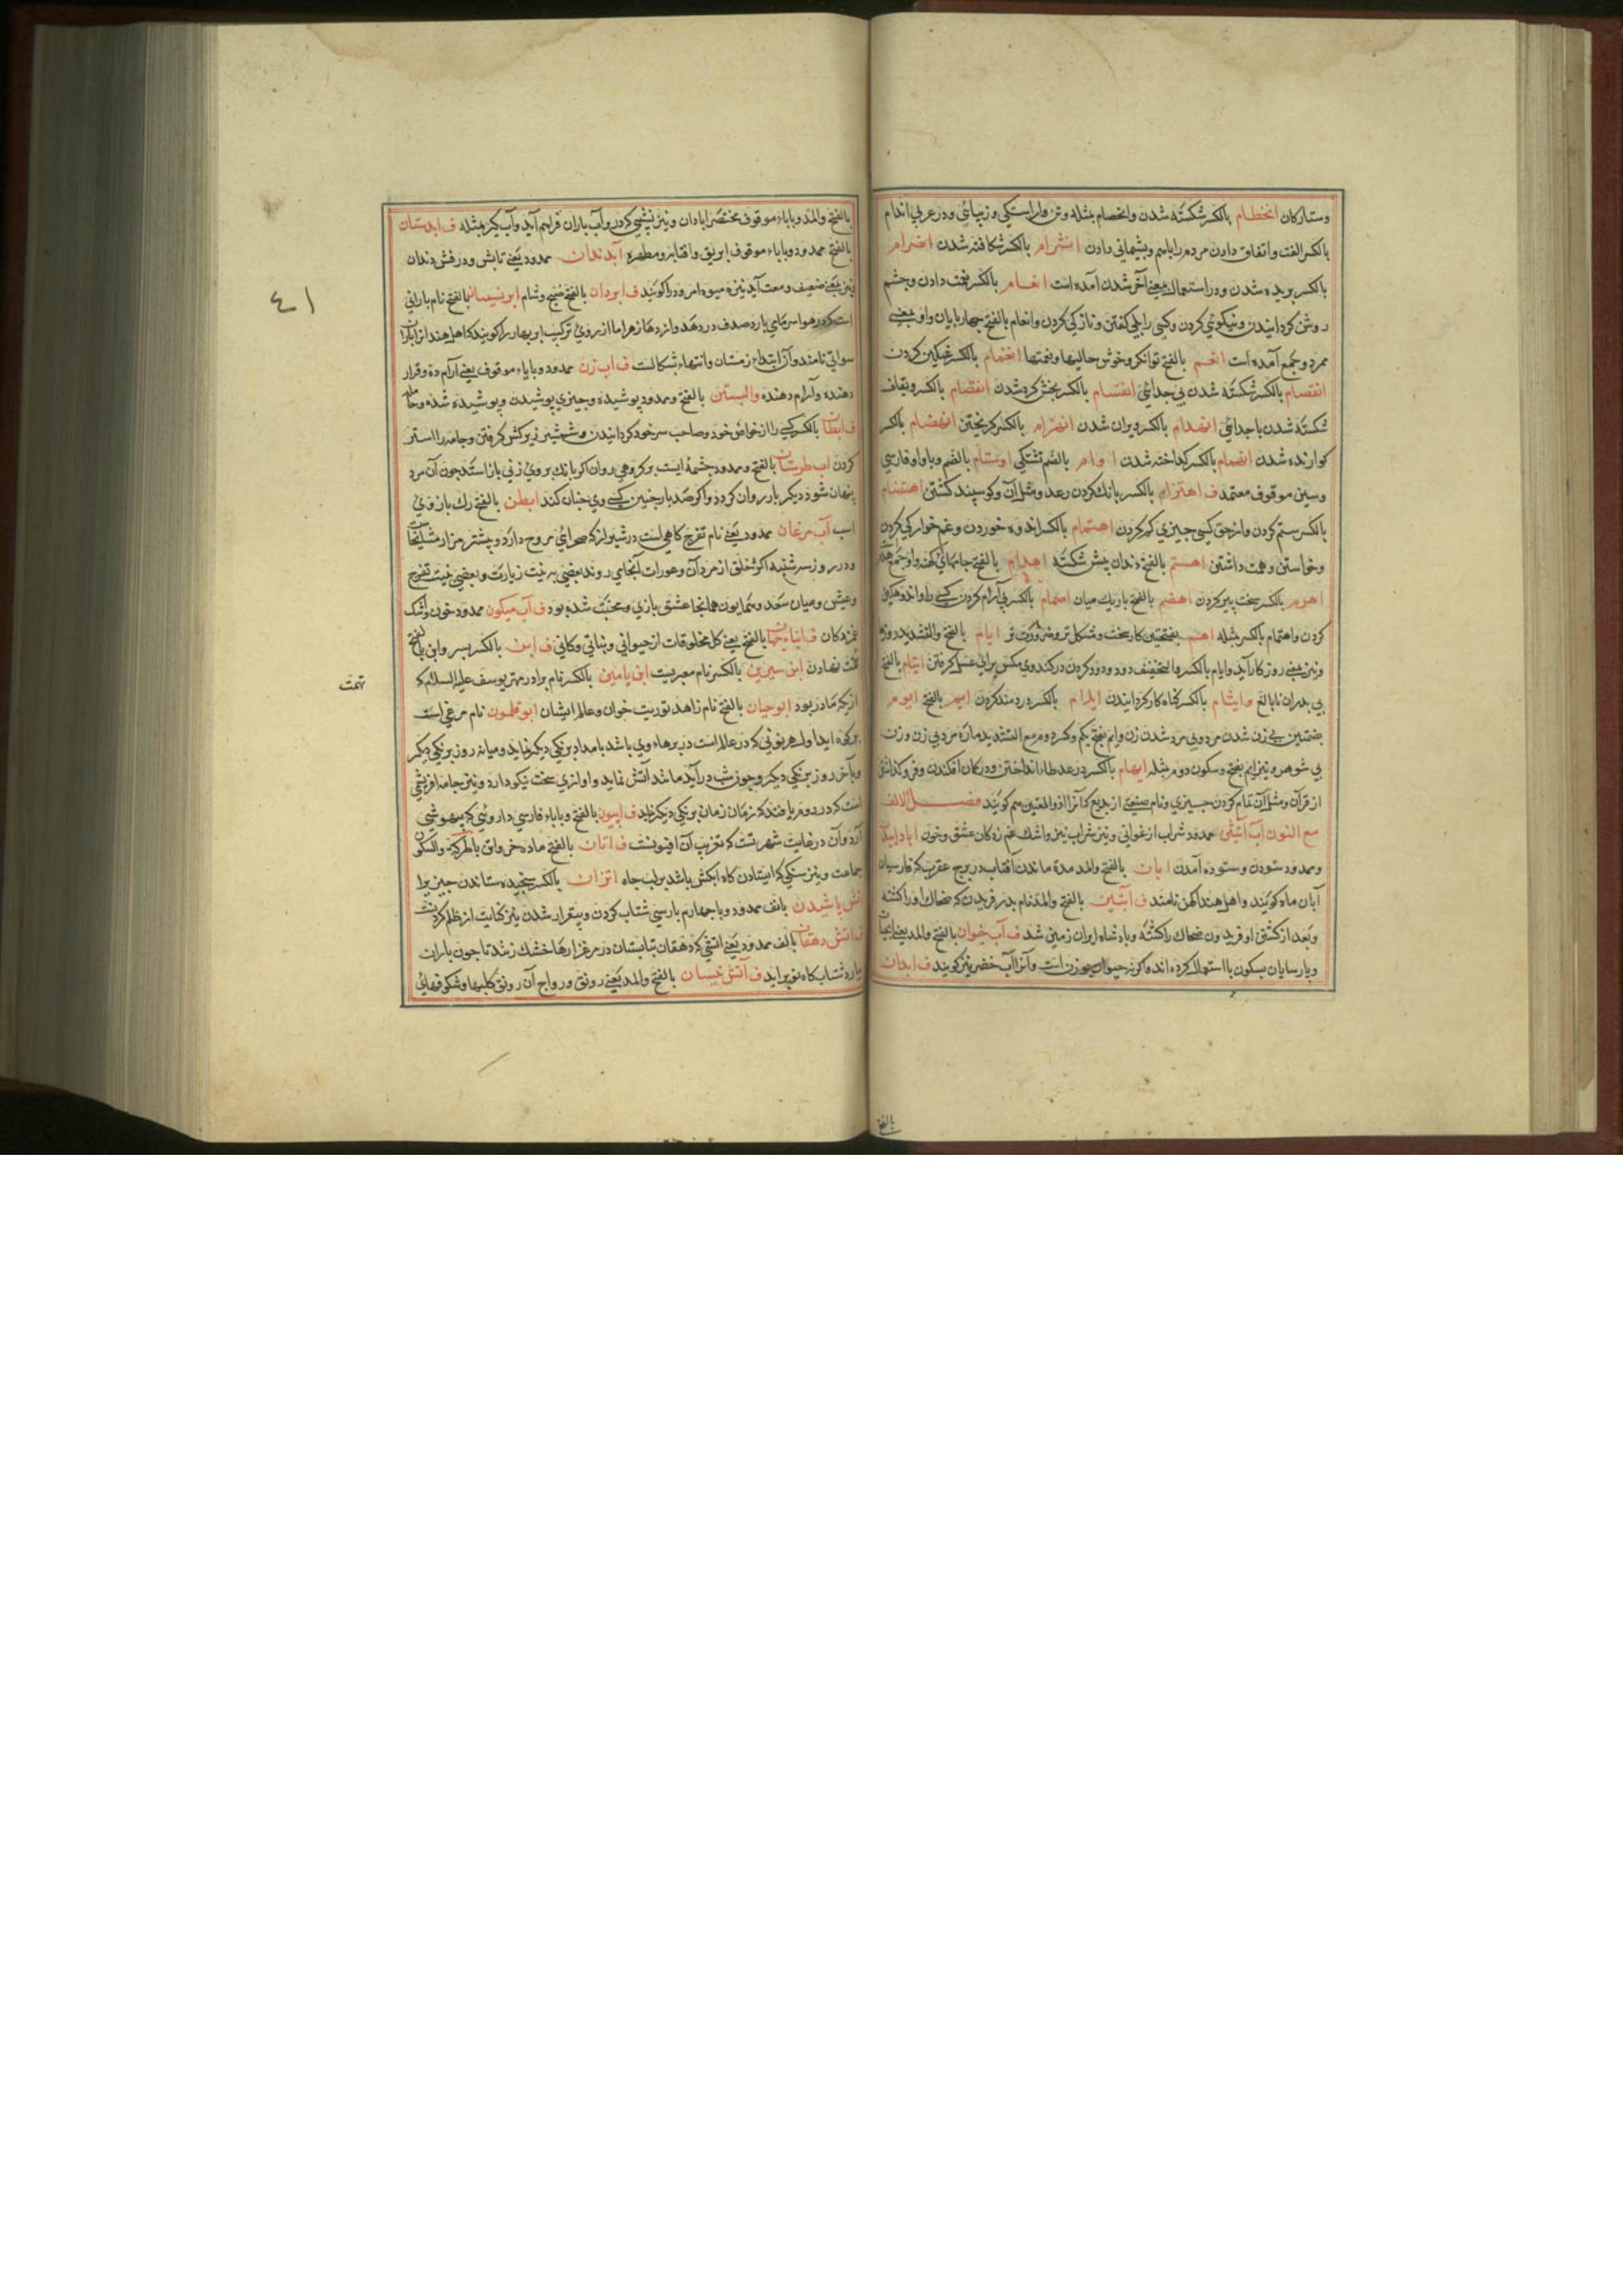 وستارکان انحطام بالکسر شکسته شدن وانحصام مثله وتن وار استکی وزیبائی ودر عربی اندام
بالکسر الفت واتفاق دادن مردم را باهم وپشیمانی دادن انشرام بالکسر شکافته شدن انصرام
بالکسر بریده شدن ودر استعمال بمعنی آخر شدن آمده است انعام بالکسر نعمت دادن وچشم
روشن کردانیدن ونیکوئی کردن وکسی را بلی کفتن ونازکی کردن وانعام بالفتح چهار پایان واو بمعنی
مفرد وجمع آمده است انعم بالفتح توانکر وخوش حالیها ونعمتها انغمام بالکسر غمکین کردن
انفصام بالکسر شکسته شدن بی جدائی انقسام بالکسر بخش کرد شدن انقصام بالکسر وبقاف
شکسته شدن باجدائی انهدام بالکسر ویران شدن انهزام بالکسر کریختن انهضام بالکسر
کوارنده شدن انهمام بالکسر کداخته شدن اوام بالضم تشنکی اوستام بالضم وباواو فارسی
وسین موقوف معتمد ف اهتزام بالکسر بانک کردن رعد ومثل آن وکوسپند کشتن اهتضام
بالکسر ستم کردن واز حق کسی چیزی کم کردن اهتمام بالکسر اندوه خوردن وغم خوارکی کردن
وخواستن وهمت داشتن اهتم بالفتح دندان پیش شکسته اهدام بالفتح جامهای کهنه واو جمع هدم
اهرم بالکسر سخت پیر کردن اهضم بالفتح باریک میان اهمام بالکسر بی آرام کردن کسی را واندوهکین
کردن واهتمام بالکسر مثله اهم بفتحتین کار سخت ومشکل تر وضرورت تر ایام بالفتح والتشدید روزها
ونیز بمعنی روزکار آید وایام بالکسر والتخفیف دود ودود کردن در کندوی مکس برای عسل کرفتن ایتام بالفتح
بی پدران نابالغ وایثام بالکسر کناه کار کردانیدن ایلام بالکسر دردمند کردن ایم بالفتح ایوم
بضمتین بی زن شدن مرد وبی مرد شدن زن وایم بفتح یکم وکسر دوم مع التشدید مازه مرد بی زن وزن
بی شوهر ونیز ایم بفتح وسکون دوم مثله ایهام بالکسر در غلط انداختن ودر کمان افکندن وفرو کذاشتن
از قرآن ومثل آن تمام کردن چیزی ونام صنعتی از بدیع که آنرا ذو المعنیین هم کویند فصل الالف
مع النون آب آتشین ممدود شراب ارغوانی ونیز شراب تیز واشک غم زدکان عشق وخون ابادانیدن
وممدود ستودن وستوده آمدن ابان بالفتح والمد مدة ماندن آفتاب در برج عقرب که فارسیان
آبان ماه کویند واهل هند اکهن نامند ف آبتین بالفتح والمد نام پدر فریدن که ضحاک او را کشته
وبعد از کشتن او فریدون ضحاک را کشته وپادشاه ایران زمین شد ف آب حیوان بالفتح والمد یعنی آبحیات
وپارسایان بسکون یا استعمال کرده اند واکر نه حیوان بوزن است وآنرا آب خضر نیز کویند ف ابدان
بالفتح
بالفتح والمد وباباء موقوف مختصر ابادان ونیز نشیبی که درو آب باران فراهم آید وآب کیر مثله ف ابدستان
بالفتح ممدود وباباء موقوف ابریق وافتابه ومطهره آبدندان ممدود یعنی تابش ودرفش دندان
ونیز بمعنی ضعیف ومعت آید ونیز میوه امرود را کویند ف ابردان بالفتح صبح وشام ابر نیسان بالفتح نام بارانی
است که در هوا سرمای بارد صدف در دهد وازدها زهر اما از روی ترکیب ابر بهار را کویند که اهل هند انرا باران
سواتی نامند وآن ابتداء زمستان وانتهاء بشکالست ف اب زن ممدود وبایاء موقوف یعنی آرام ده وقرار
دهنده وآرام دهنده والبستن بالفتح وممدود پوشیده وچیزی پوشیدن وپوشیده شده وحامله
ف ابطان بالکسر کسی را از خواص خود وصاحب سر خود کردانیدن وشمشیر زیر کش کرفتن وجامه را استر
کردن اب طرستان بالفتح وممدود چشمه ایست بر کوهی روان اکر بانک بروی زنی باز استد چون آن مرد
پنهان شود دیکر بار روان کردد واکر صد بار چنین کسی وی چنان کند ابطن بالفتح رک بازوی
اسب آب مرغان ممدود یعنی نام تفرج کاهی است در شیراز که صحرائی مروح دارد وپشتر مزار مشایخ آنجا
ودر روز سه شنبه اکثر خلق از مردان وعورات آنجای روند بعضی بر نیت زیارت وبعضی بنیت تفرج
وعیش ومیان سعد وهمایون همانجا عشق بازی ومحبت شده بود ف آب میکون ممدود خون واشک
غمزدکان ف ابناء جهان بالفتح یعنی کل مخلوقات از حیوانی ونباتی وکانی ف ابن بالکسر پسر وابن بالفتح
تهمت نهادن ابن سیرین بالکسر نام معبریست ابن یامین بالکسر نام برادر مهتر یوسف علیه السلام که
از یک مادر بود ابو حیان بالفتح نام زاهد توریت خوان وعالم ایشان ابو قلمون نام مرغی است
برکونه ابدا وله هر نونی که در عالم است در پرهاء وی باشد بامداد برنکی دیکر نماید ومیانه روز برنکی دیکر
وبآخر روز برنکی دیکر وچون شب درآید مانند آتش نماید واوازی سخت نیکو دارد ونیز جامه افرنجی
است که در روم بافند که زمان زمان برنکی دیکر نماید ف اپیون بالفتح وباباء فارسی داروئی که بیهوشی
آرد وآن در غایت شهرتست که تعریب آن افیونست ف اتان بالفتح ماده خر واتن بالحرکة والسکون
جماعت ونیز سنکی که ایستادن کاه ابکش باشد بر لب چاه اتزان بالکسر سنجیده ستاندن چیز را
آتش پاشیدن بالف ممدود وباچهارم پارسی شتاب کردن وبیقرار شدن نیز کنایت از ظلم کردنست
ف آتش دهقان بالف ممدود یعنی آتشی که دهقان تابستان در مرغزارها خشک زنند تا چون باران
بارد شتاب کاه نو براید ف آتش خیسان بالفتح والمد یعنی رونق ورواج آن رونق کلها وشکوفهای
٤١
تهمت